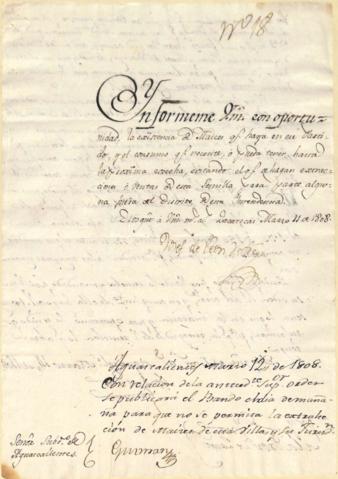 Nº 18
Informeme Vm. con oportu-
nidad, la existencia de Maices qe. haya en ese Parti-
do, y el consumo qe. necesite, ó pueda tener, hasta
la proxima cosecha, evitando el qe. se hagan extrac-
ciones ó ventas de esta Semilla, para parte algu-
na fuera del distrito de esta Intendencia.
Dios gue. á Vm. ms. as. Zacatecas Marzo 11 de 1808.
Aguascalientes Marzo 12 de 1808.
Con relacion de la antecedte. Supor. orden
se publicará el Bando el dia de maña-
na para que no se permita la extrac-
ción de Maices de esta Villa, y su Jurisdn.
Guzman
Señor Subdo. de
Aguascalientes.